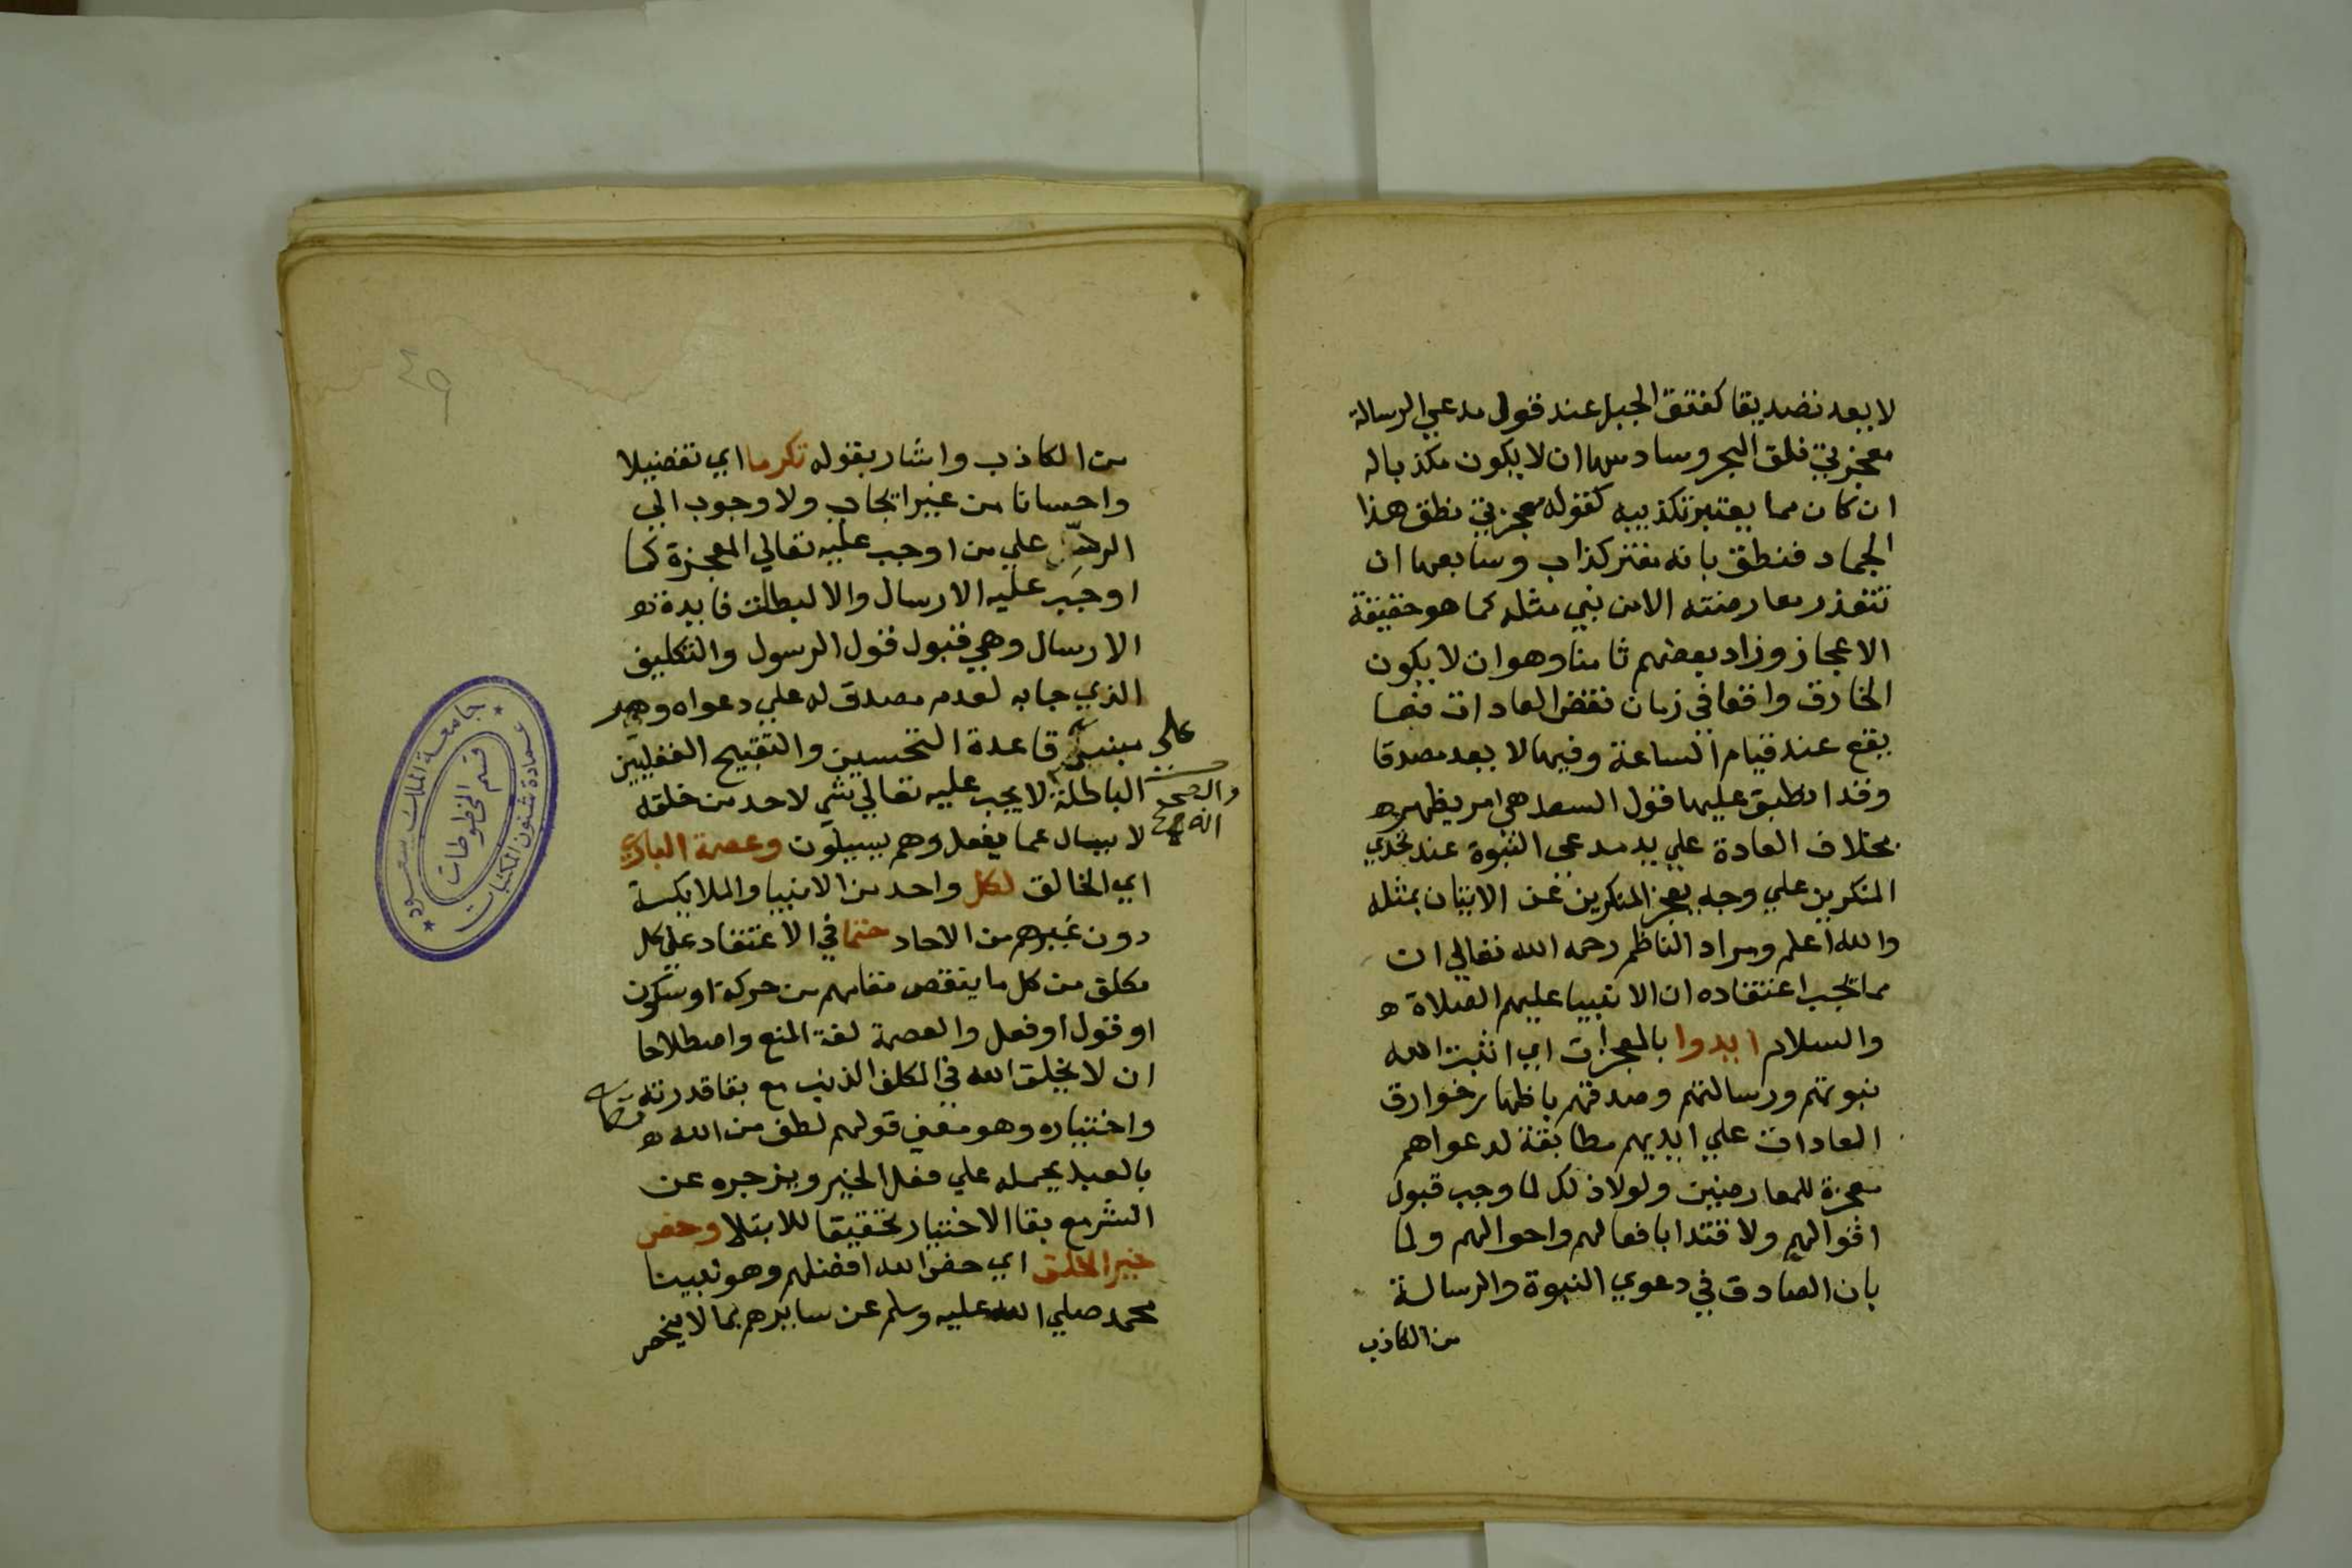 لا يعد تصديقا كفتق الجبل عند قول مدعي الرسالة
معجزتي فلق البحر وسادسها ان لا يكون مكذبا له
ان كان مما يعتبر تكذيبه كقوله معجزتي نطق هذا
الجماد فنطق بانه مفتر كذاب وسابعها ان
تتعذر معارضته الا من نبي مثله كما هو حقيقة
الاعجاز وزاد بعضهم ثامنا وهو ان لا يكون
الخارق واقعا في زمان نقض العادات فما
يقع عند قيام الساعة وفيها لا يعد مصدقا
وقد انطبق عليها قول السعد هي امر يظهر
بخلاف العادة علي يد مدعى النبوة عند تحدي
المنكرين علي وجه يعجز المنكرين عن الاتيان بمثله
والله اعلم ومراد الناظم رحمه الله تعالي ان
مما يجب اعتقاده ان الانبيا عليهم الصلاة
والسلام ايدوا بالمعجزات اي اثبت الله
نبوتهم ورسالتهم وصدقهم باظهار خوارق
العادات علي ايديهم مطابقة لدعواهم
معجزة للمعارضين ولولا ذلك لما وجب قبول
اقوالهم ولا قتدا بافعالهم واحوالهم ولما
بان الصادق في دعوي النبوة والرسالة
من الكاذب
من الكاذب واشار بقوله تكرما اي تفضيلا
واحسانا من غير ايجاب ولا وجوب الي
الرد علي من اوجب عليه تعالي المعجزة كما
اوجب عليه الارسال والا لبطلت فايدة
الارسال وهي قبول قول الرسول والتكليف
الذي جا به لعدم مصدق له علي دعواه وهو
مبني علي قاعدة التحسين والتقبيح العقليين
الباطلة والصحيح انه لا يجب عليه تعالي شي لاحد من خلقه
لا يسال عما يفعل وهم يسيلون وعصمة الباري
اي الخالق لكل واحد من الانبيا والملايكة
دون غيرهم من الاحاد حتما في الاعتقاد علي كل
مكلف من كل ما ينقص مقامهم من حركة او سكون
او قول او فعل والعصمة لغة المنع واصطلاحا
ان لا يخلق الله في المكلف الذنب مع بقا قدرته
واختياره وهو معني قولهم لطف من الله تعالي
بالعبد يحمله علي فعل الخير ويزجره عن
الشر مع بقا الاختيار تحقيقا للابتلا وخص
خير الخلق اي خص الله افضلهم وهو نبينا
محمد صلي الله عليه وسلم عن سايرهم بما لا ينحصر
جامعة الملك سعود
عمادة شئون المكتبات
قسم المخطوطات